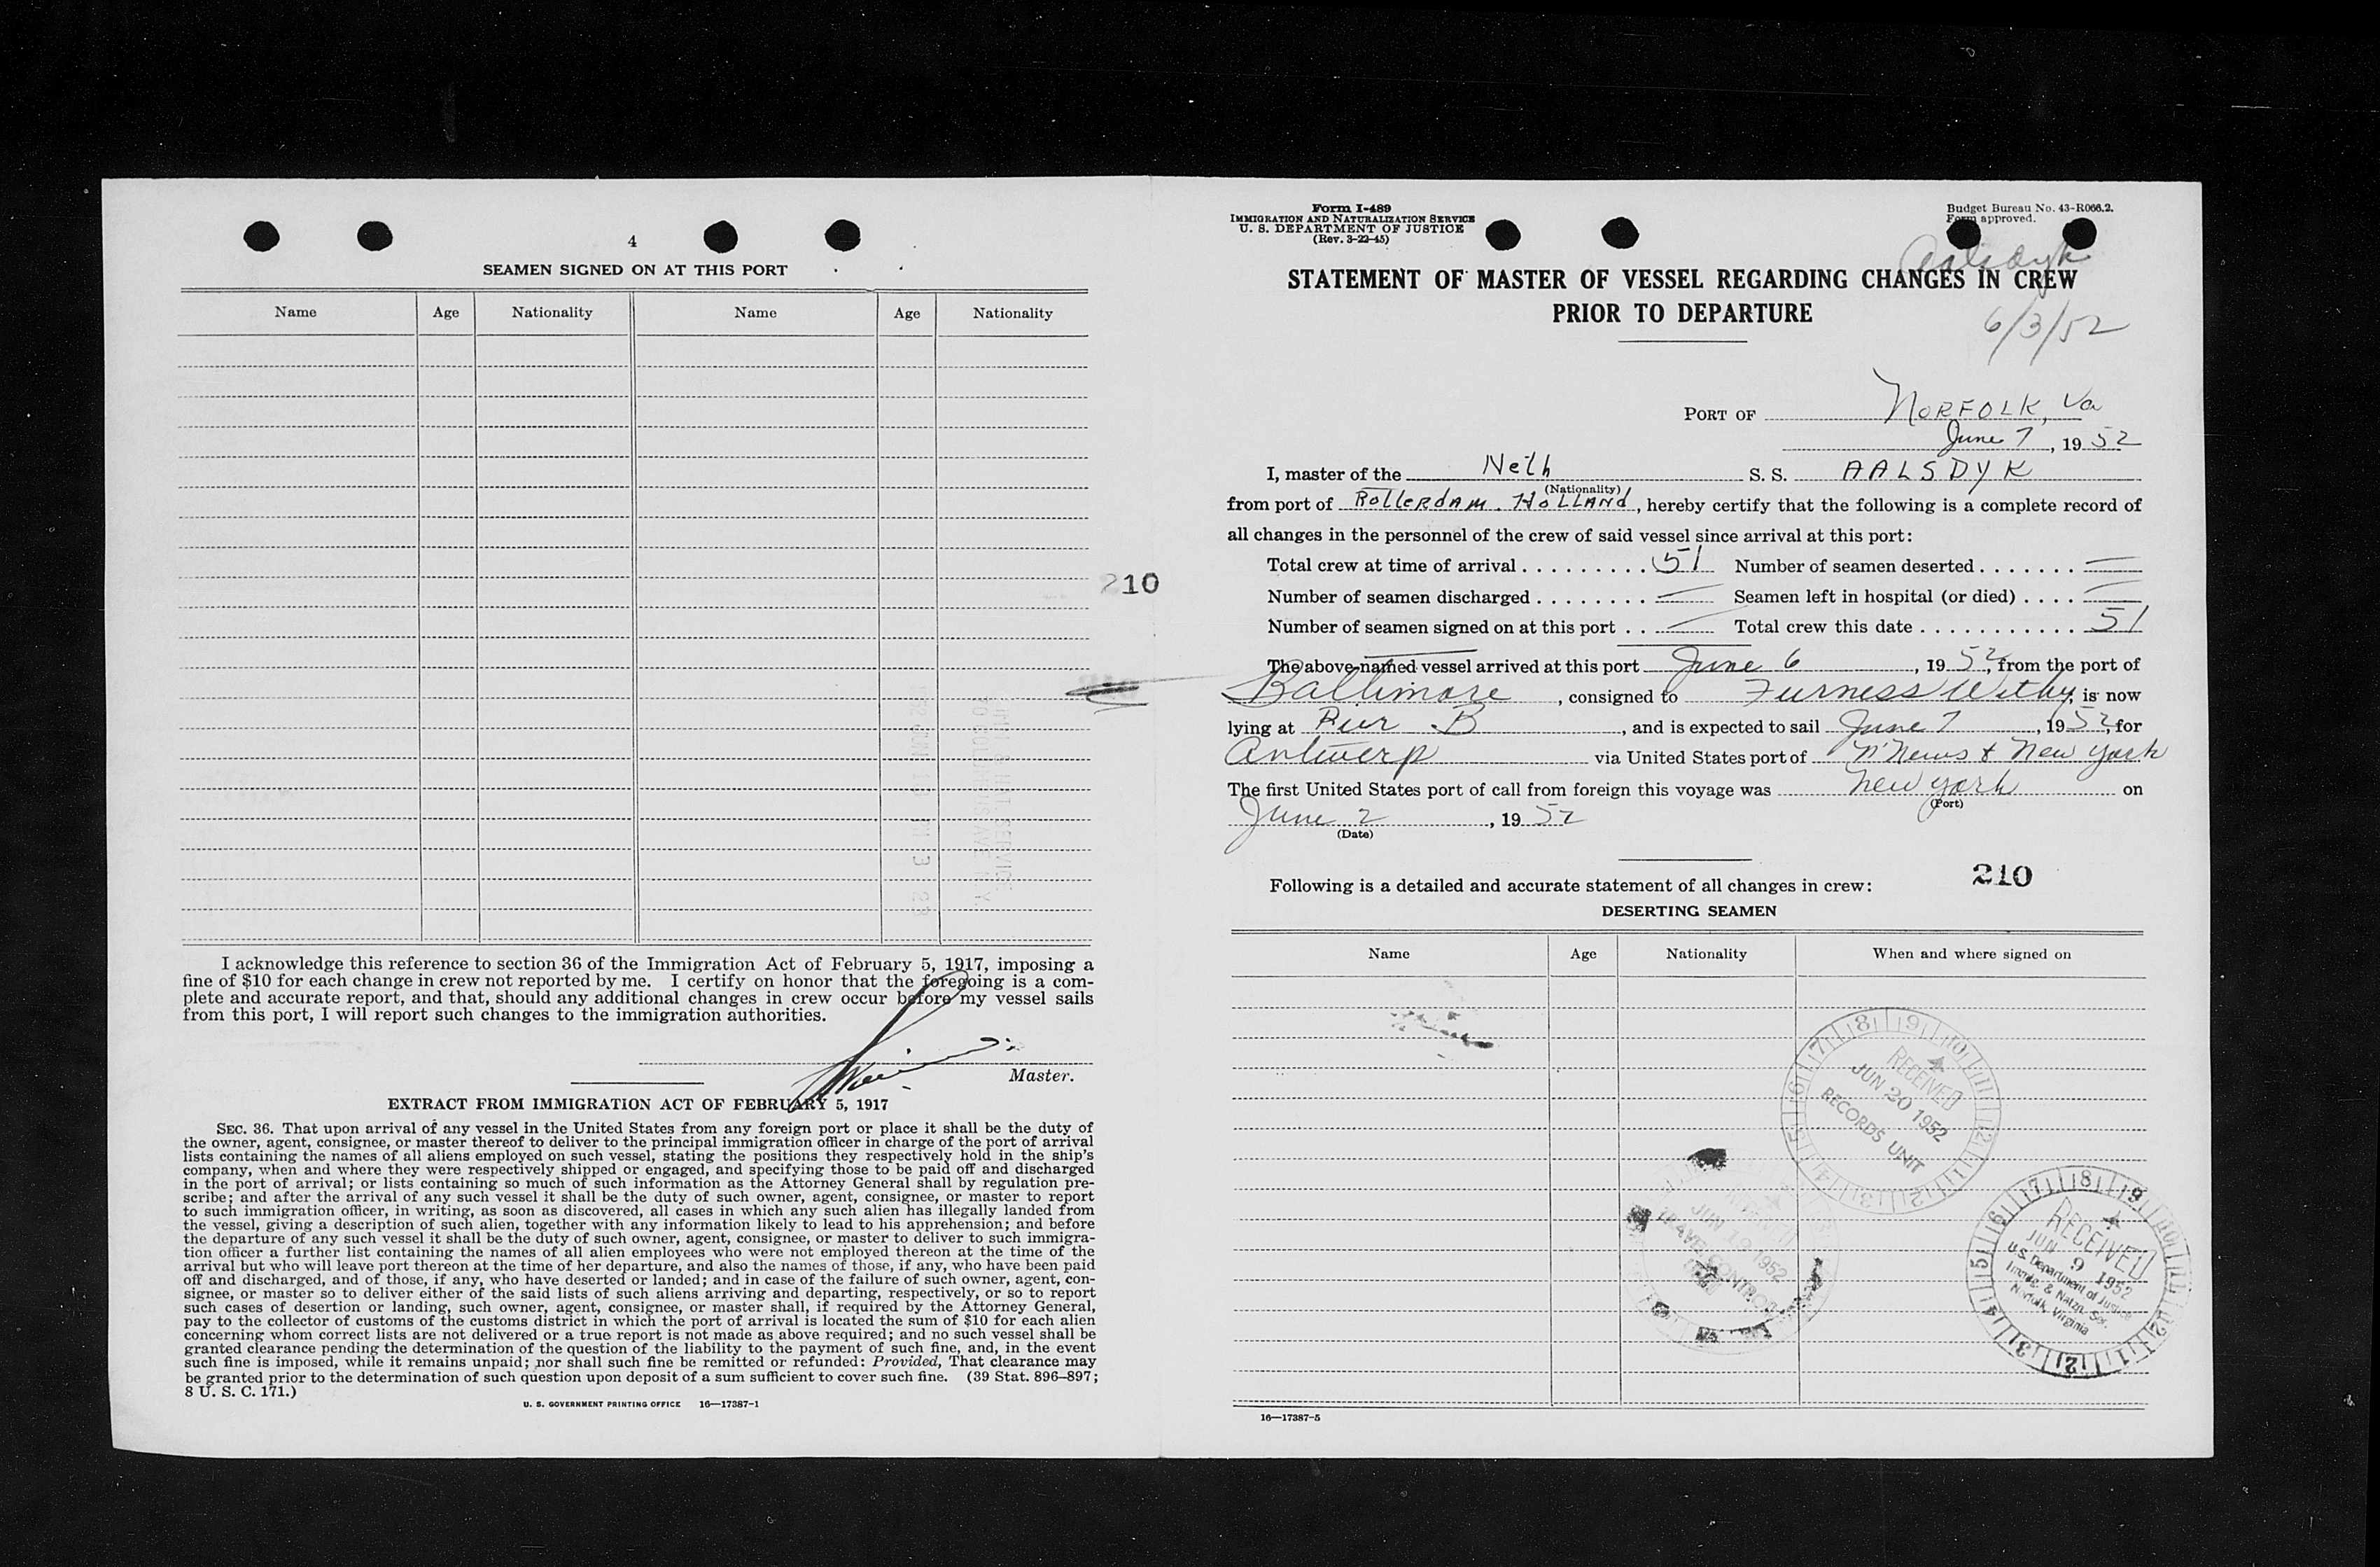 4
SEAMEN SIGNED ON AT THIS PORT
Name Age Nationality Name Age Nationality
210
I acknowledge this reference to section 36 of the Immigration Act of February 5, 1917, imposing a
fine of $10 for each change in crew not reported by me. I certify on honor that the foregoing is a com-
plete and accurate report, and that, should any additional changes in crew occur before my vessel sails
from this port, I will report such changes to the immigration authorities.
Master.
EXTRACT FROM IMMIGRATION ACT OF FEBRUARY 5, 1917
SEC. 36. That upon arrival of any vessel in the United States from any foreign port or place it shall be the duty of
the owner, agent, consignee, or master thereof to deliver to the principal immigration officer in charge of the port of arrival
lists containing the names of all aliens employed on such vessel, stating the positions they respectively hold in the ship's
company, when and where they were respectively shipped or engaged, and specifying those to be paid off and discharged
in the port of arrival; or lists containing so much of such information as the Attorney General shall by regulation pre-
scribe; and after the arrival of any such vessel it shall be the duty of such owner, agent, consignee, or master to report
to such immigration officer, in writing, as soon as discovered, all cases in which any such alien has illegally landed from
the vessel, giving a description of such alien, together with any information likely to lead to his apprehension; and before
the departure of any such vessel it shall be the duty of such owner, agent, consignee, or master to deliver to such immigra-
tion officer a further list containing the names of all alien employees who were not employed thereon at the time of the
arrival but who will leave port thereon at the time of her departure, and also the names of those, if any, who have been paid
off and discharged, and of those, if any, who have deserted or landed; and in case of the failure of such owner, agent, con-
signee, or master so to deliver either of the said lists of such aliens arriving and departing, respectively, or so to report
such cases of desertion or landing, such owner, agent, consignee, or master shall, if required by the Attorney General,
pay to the collector of customs of the customs district in which the port of arrival is located the sum of $10 for each alien
concerning whom correct lists are not delivered or a true report is not made as above required; and no such vessel shall be
granted clearance pending the determination of the question of the liability to the payment of such fine, and, in the event
such fine is imposed, while it remains unpaid; nor shall such fine be remitted or refunded: Provided, That clearance may
be granted prior to the determination of such question upon deposit of a sum sufficient to cover such fine. (39 Stat. 896–897;
8 U. S. C. 171.)
U. S. GOVERNMENT PRINTING OFFICE 16—17387-1
Form I-489
IMMIGRATION AND NATURALIZATION SERVICE
U. S. DEPARTMENT OF JUSTICE
(Rev. 3-22-45)
Budget Bureau No. 43-R066.2.
Form approved.
Aalsdyk
STATEMENT OF MASTER OF VESSEL REGARDING CHANGES IN CREW
PRIOR TO DEPARTURE
6/3/52
PORT OF NORFOLK, Va
June 7, 1952
I, master of the Neth S. S. AALSDYK
(Nationality)
from port of Rotterdam. HOLLANd, hereby certify that the following is a complete record of
all changes in the personnel of the crew of said vessel since arrival at this port:
Total crew at time of arrival . . . . . . . . . 51 Number of seamen deserted . . . . . . . —
Number of seamen discharged . . . . . . . . — Seamen left in hospital (or died) . . . . —
Number of seamen signed on at this port . . — Total crew this date . . . . . . . . . . . . 51
The above-named vessel arrived at this port June 6, 1952, from the port of
Baltimore, consigned to Furness Withy, is now
lying at Pier B, and is expected to sail June 7, 1952, for
Antwerp via United States port of N'News & New York
The first United States port of call from foreign this voyage was New York on
(Port)
June 2, 1952
(Date)
210
Following is a detailed and accurate statement of all changes in crew:
DESERTING SEAMEN
Name Age Nationality When and where signed on
RECEIVED
JUN 20 1952
RECORDS UNIT
JUN 19 1952
CONTROL
RECEIVED
JUN 9 1952
U.S. Department of Justice
Immig. & Natzn. Ser.
Norfolk, Virginia
16—17387-5